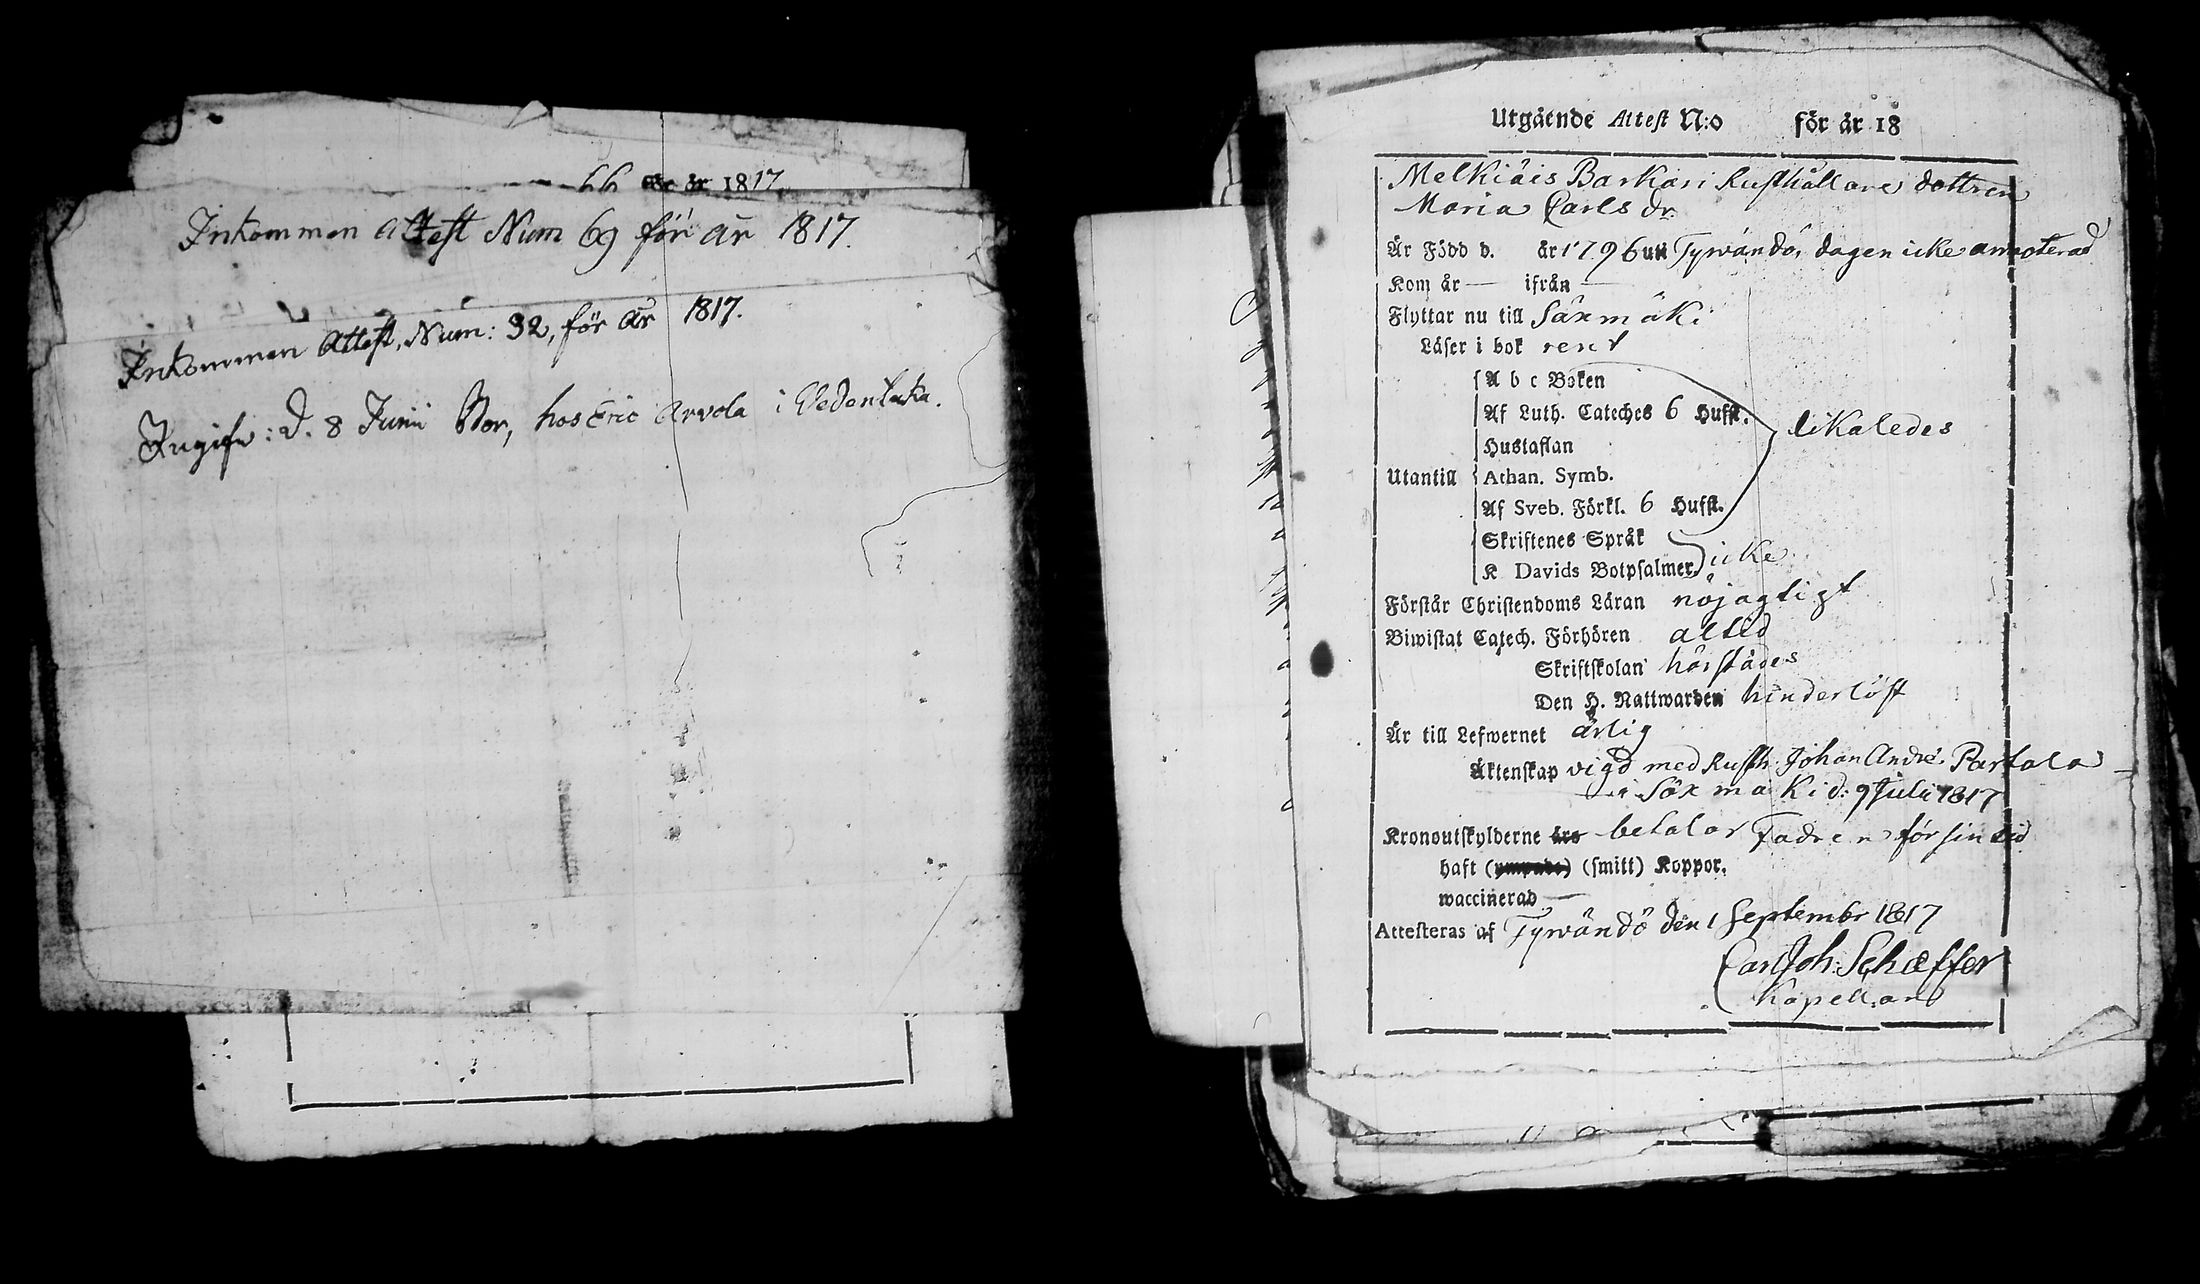 66 för år 1817.
Inkommen Attest Num 69 för år 1817.
Inkommen Attest, Num: 32, för år 1817.
d. 8 Junii Bor, hos Eric Arvola i
Utgående Attest N:o för år 18
Melkiäis Barkari Rusthållare dottren
Maria Carls dr.
Är Född d. år 1796 uti Tyrwändö, dagen icke annoterad
Kom år — ifrån —
Flyttar nu till Säxmäki
Läser i bok rent
A b c Boken
Af Luth. Cateches 6 Hufst.
likaledes
Hustaflan
Utantill Athan. Symb.
Af Sveb. Förkl. 6 Hufst.
Skriftenes Språk
icke
K Davids Botpsalmer
Förstår Christendoms Läran nöjagligt
Biwistat Catech. Förhören altid
Skriftskolan härstädes
Den H. Nattwarden hinderlöst
Är till Lefwernet ärlig
Äktenskap vigd med Rusth. Johan Andrs. Partala
i Säxmäki d: 9 Julii 1817
Kronoutskylderne äro betalar Fadren för sin tid
haft (ympade) (smitt) Koppor.
waccinerad —
Attesteras af Tyrwändö den 1 Septembr 1817
Carl Joh. Schæffer
Kapellan